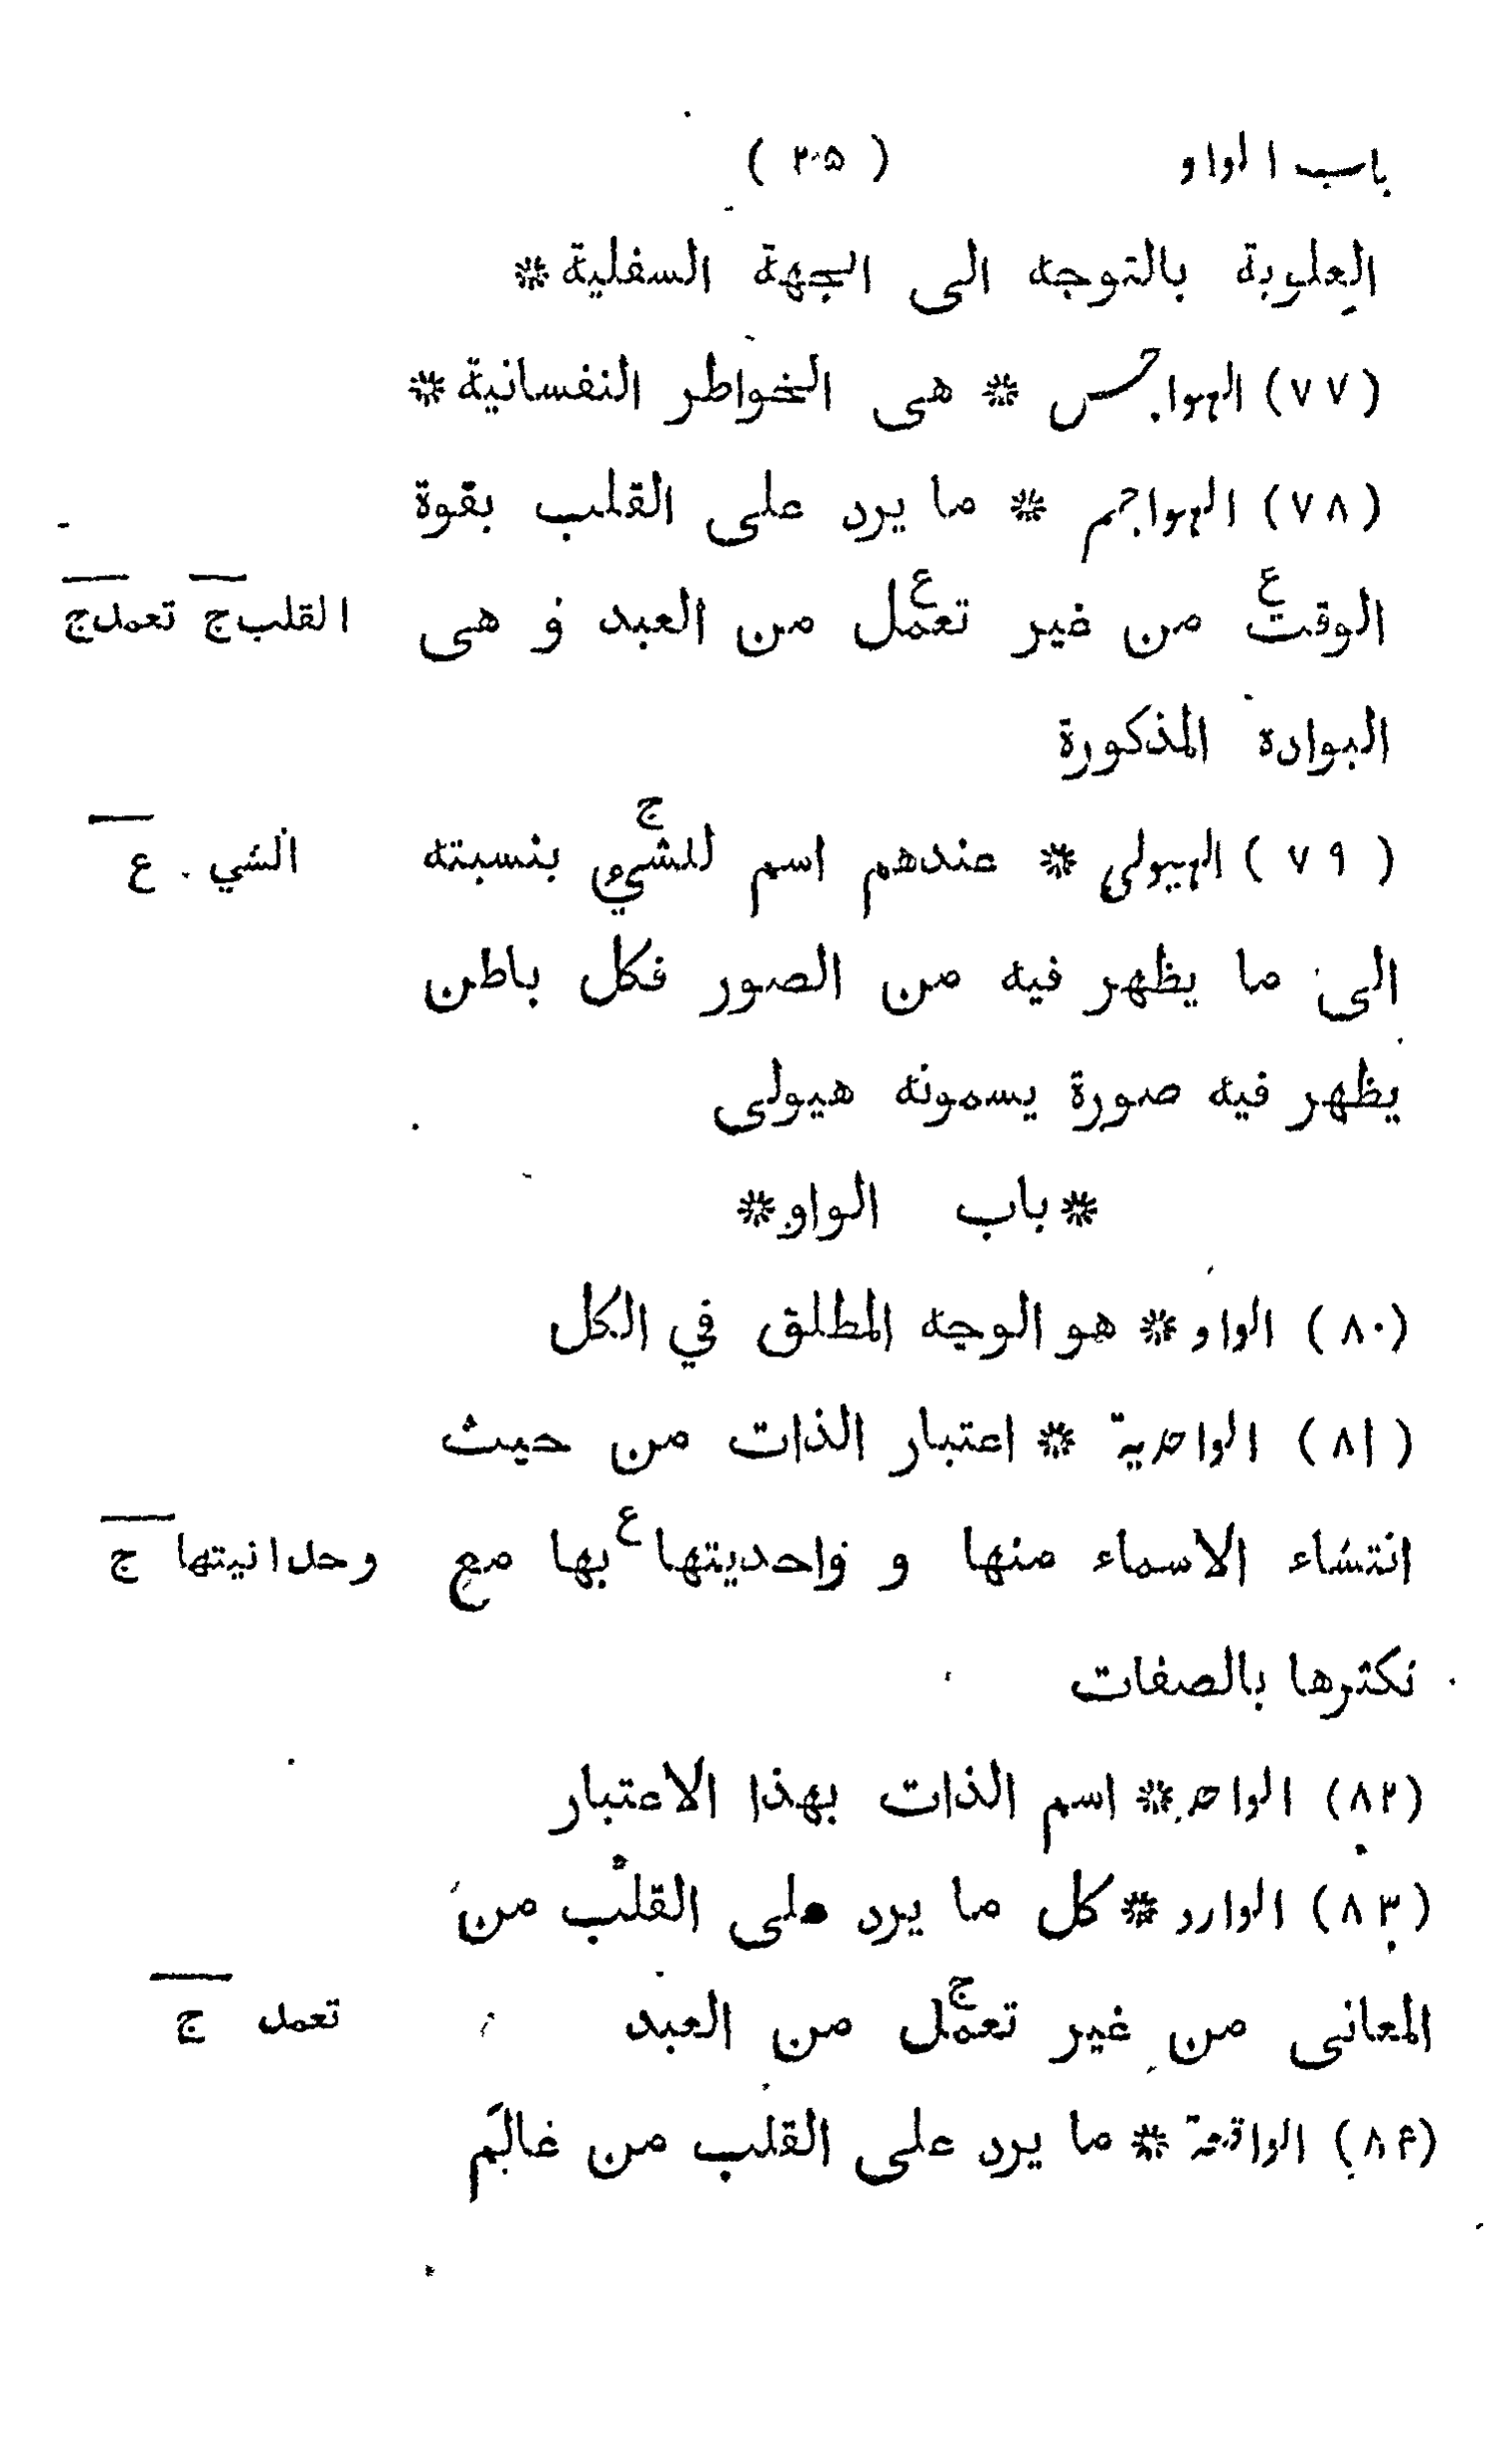 باب الواو ( ۲۰۵ )
العلوية بالتوجه الى الجهة السفلية *
(۷۷) الهواجس * هى الخواطر النفسانية *
(۷۸) الهواجم * ما يرد على القلب بقوة
الوقت ع من غير تعمل ع من العبد و هى القلب ج تعمد ج
البوادة المذكورة
(۷۹) الهيولى * عندهم اسم للشيء ج بنسبته الشي ع
الى ما يظهر فيه من الصور فكل باطن
يظهر فيه صورة يسمونه هيولى
* باب الواو *
(۸۰) الواو * هو الوجه المطلق في الكل
(۸۱) الواحدية * اعتبار الذات من حيث
انتشاء الاسماء منها و واحديتها ع بها مع وحدانيتها ج
تكثرها بالصفات
(۸۲) الواحد * اسم الذات بهذا الاعتبار
(۸۳) الوارد * كل ما يرد على القلب من
المعانى من غير تعمل ج من العبد تعمد ج
(۸۴) الواقعة * ما يرد على القلب من عالم